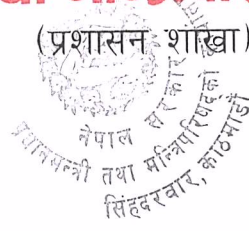 (प्रशासन शाखा)
नेपाल सरकार
प्रधानमन्त्री तथा मन्त्रिपरिषद्को
सिंहदरवार, काठमाडौं